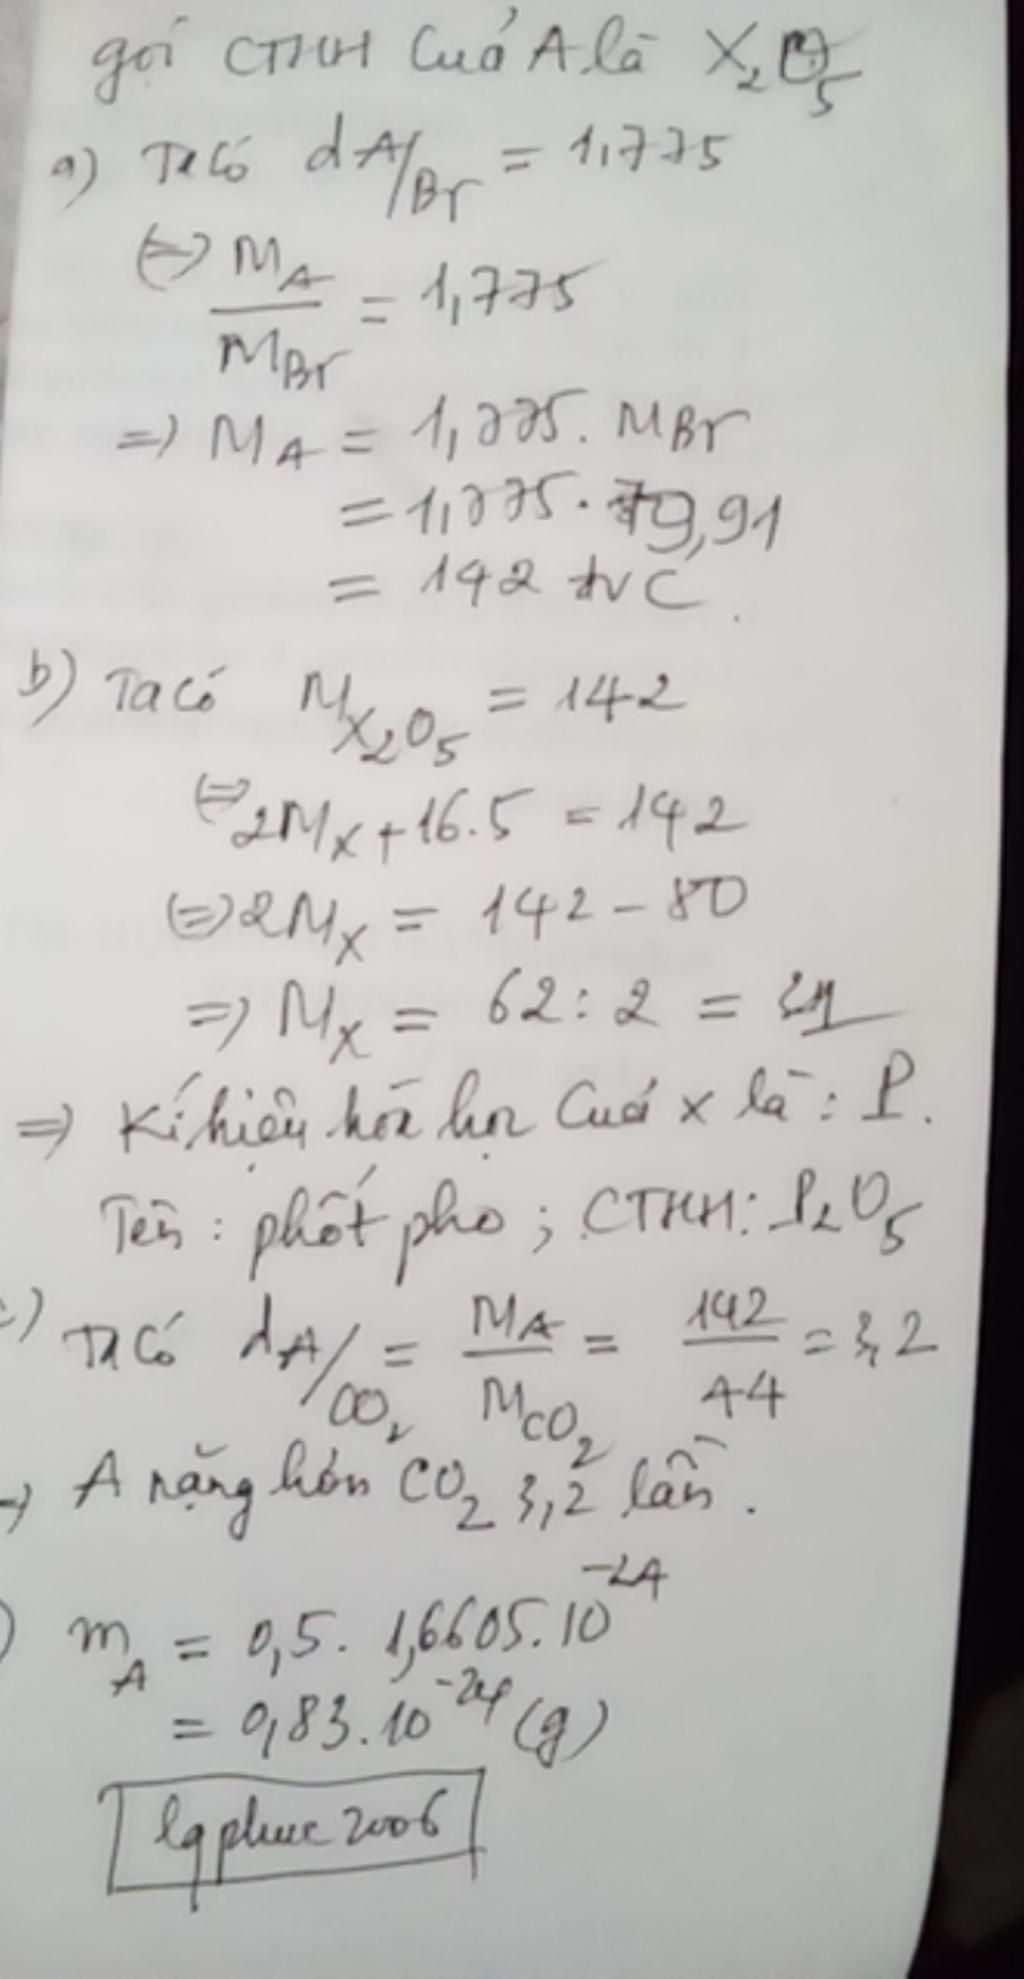 gọi CTHH Của A là X₂O₅
a) Ta có dA/Br = 1,775
(=) MA/MBr = 1,775
=) MA = 1,775. MBr
= 1,775. 79,91
= 142 đvC.
b) Ta có MX₂O₅ = 142
(=) 2MX + 16.5 = 142
(=) 2MX = 142 - 80
=) MX = 62 : 2 = 31
=) Kí hiệu hóa học Của x là : P.
Tên : phốt pho ; CTHH: P₂O₅
c) Ta Có dA/CO₂ = MA/MCO₂ = 142/44 = 3,2
=) A nặng hơn CO₂ 3,2 lần.
) mA = 0,5. 1,6605.10⁻²⁴
= 0,83.10⁻²⁴ (g)
lqphuc2006